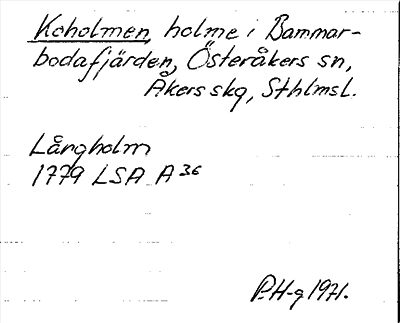 Koholmen, holme i Bammar-
bodafjärden, Österåkers sn,
Åkers skg, Sthlmsl.
Lårgholm
1779 LSA A 36
P.H-g 1971.